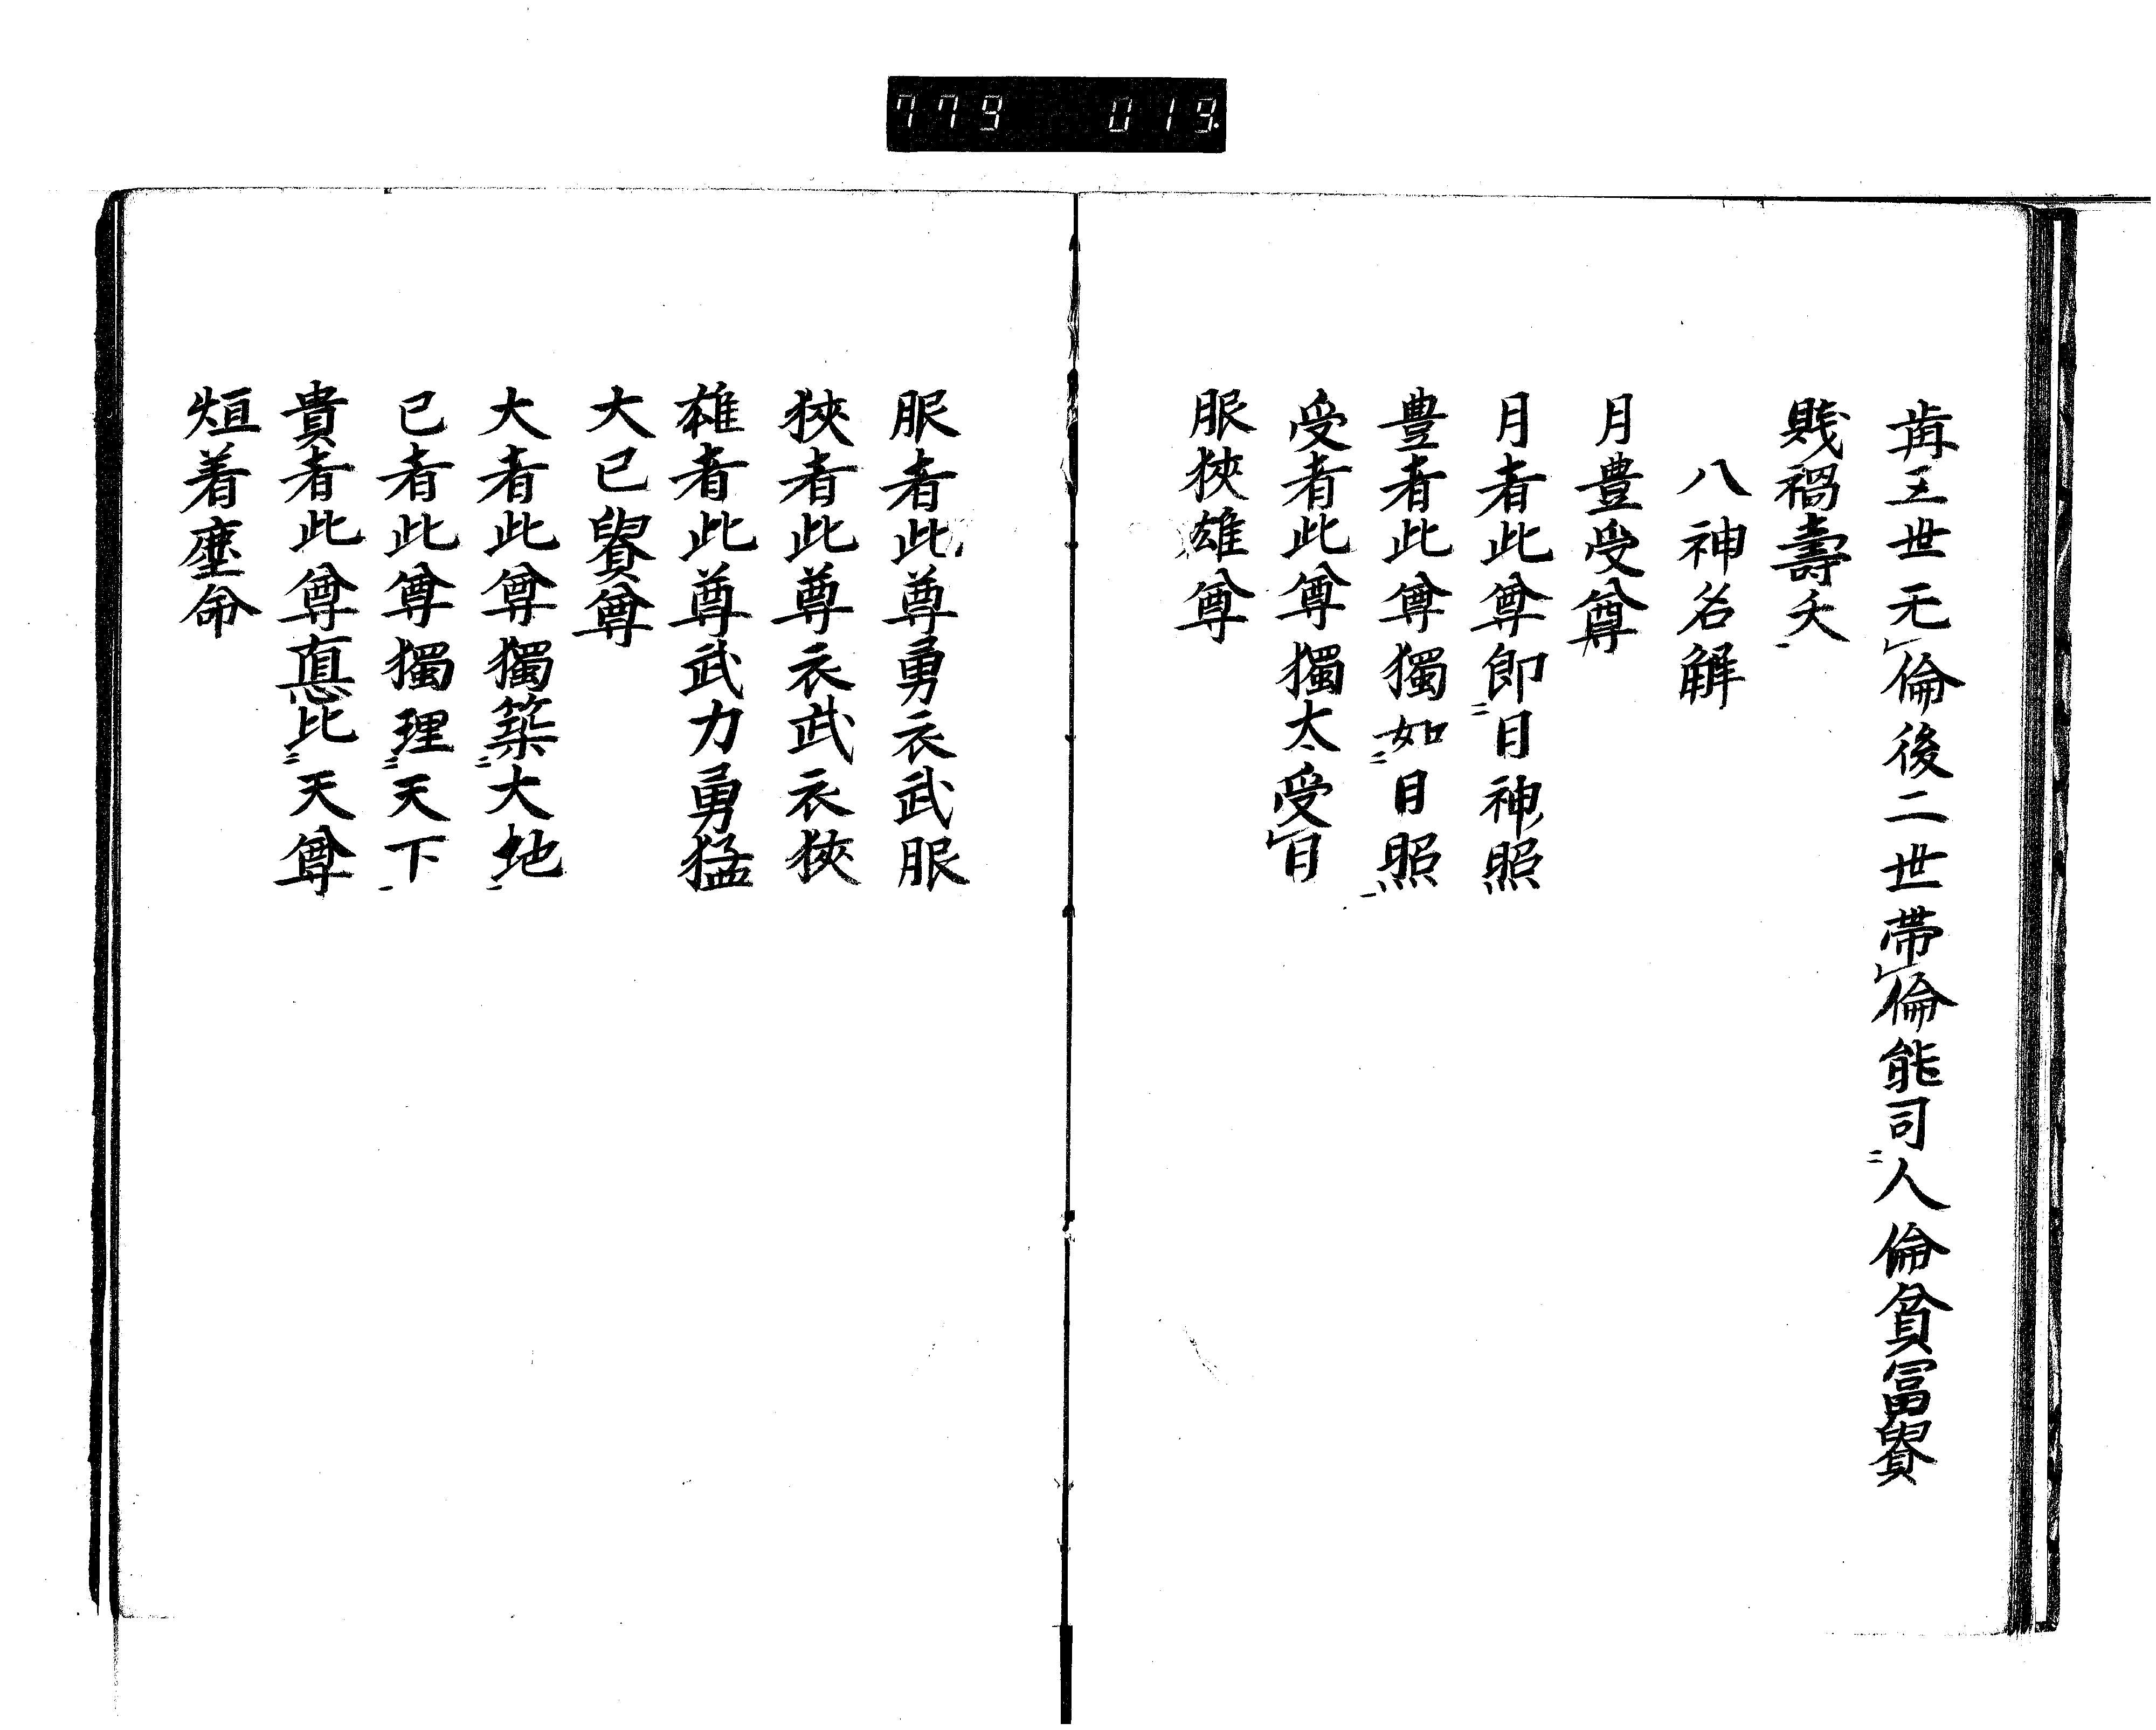 779 019
歬三世无倫後二世帯倫能司人倫貧冨貴
賤禍壽夭
八神名解
月豊受尊
月者此尊即日神照
豊者此尊獨如日照
受者此尊獨大受日
服狹雄尊
服者此尊勇衣武服
狹者此尊衣武衣狹
雄者此尊武力勇猛
大已貴尊
大者此尊獨築大地
已者此尊獨理天下
貴者此尊悳比天尊
烜着塵命